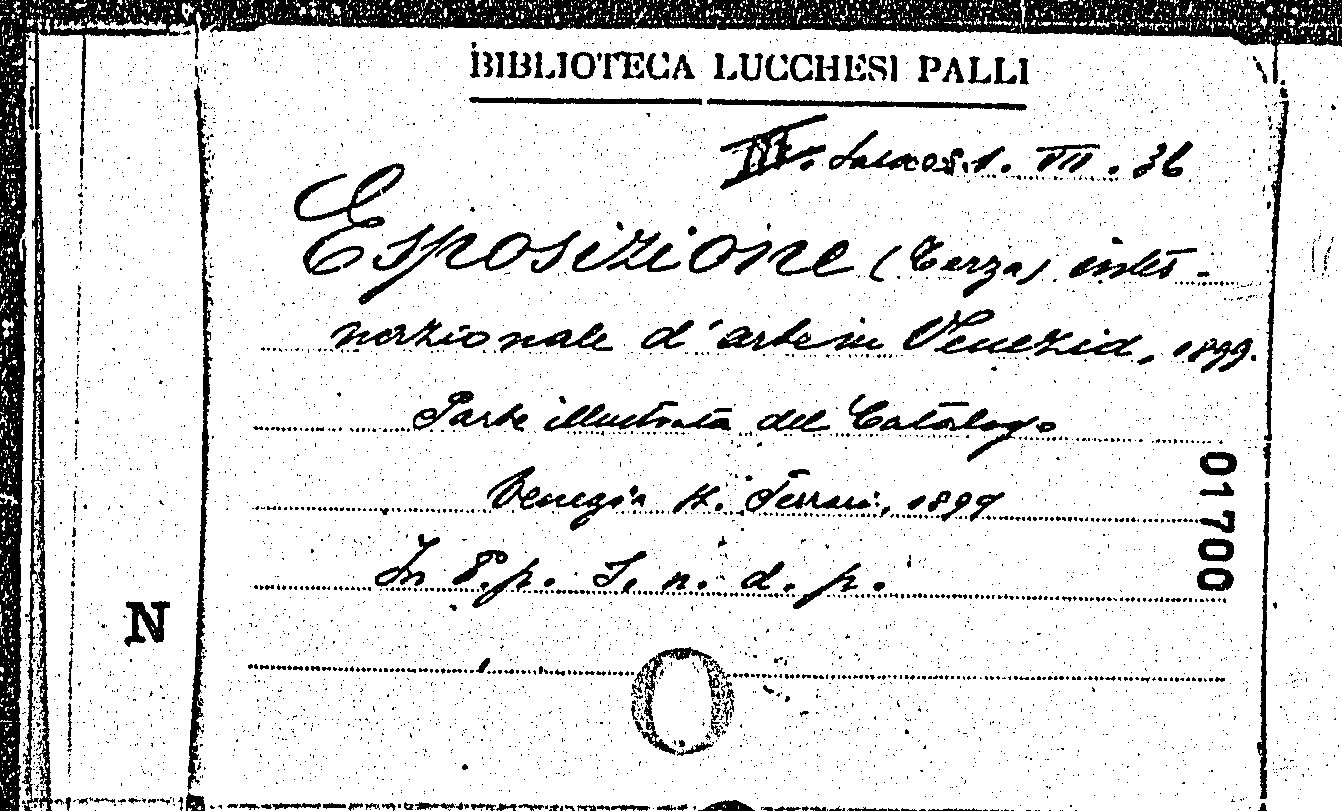 BIBLIOTECA LUCCHESI PALLI
III. 1. VII. 36
Esposizione (Terza) inter-
nazionale d'arte in Venezia, 1899.
Parte illustrata del Catalogo
Venezia K. Ferrari, 1899
In 8.p. S. n. d. p.
01700
N